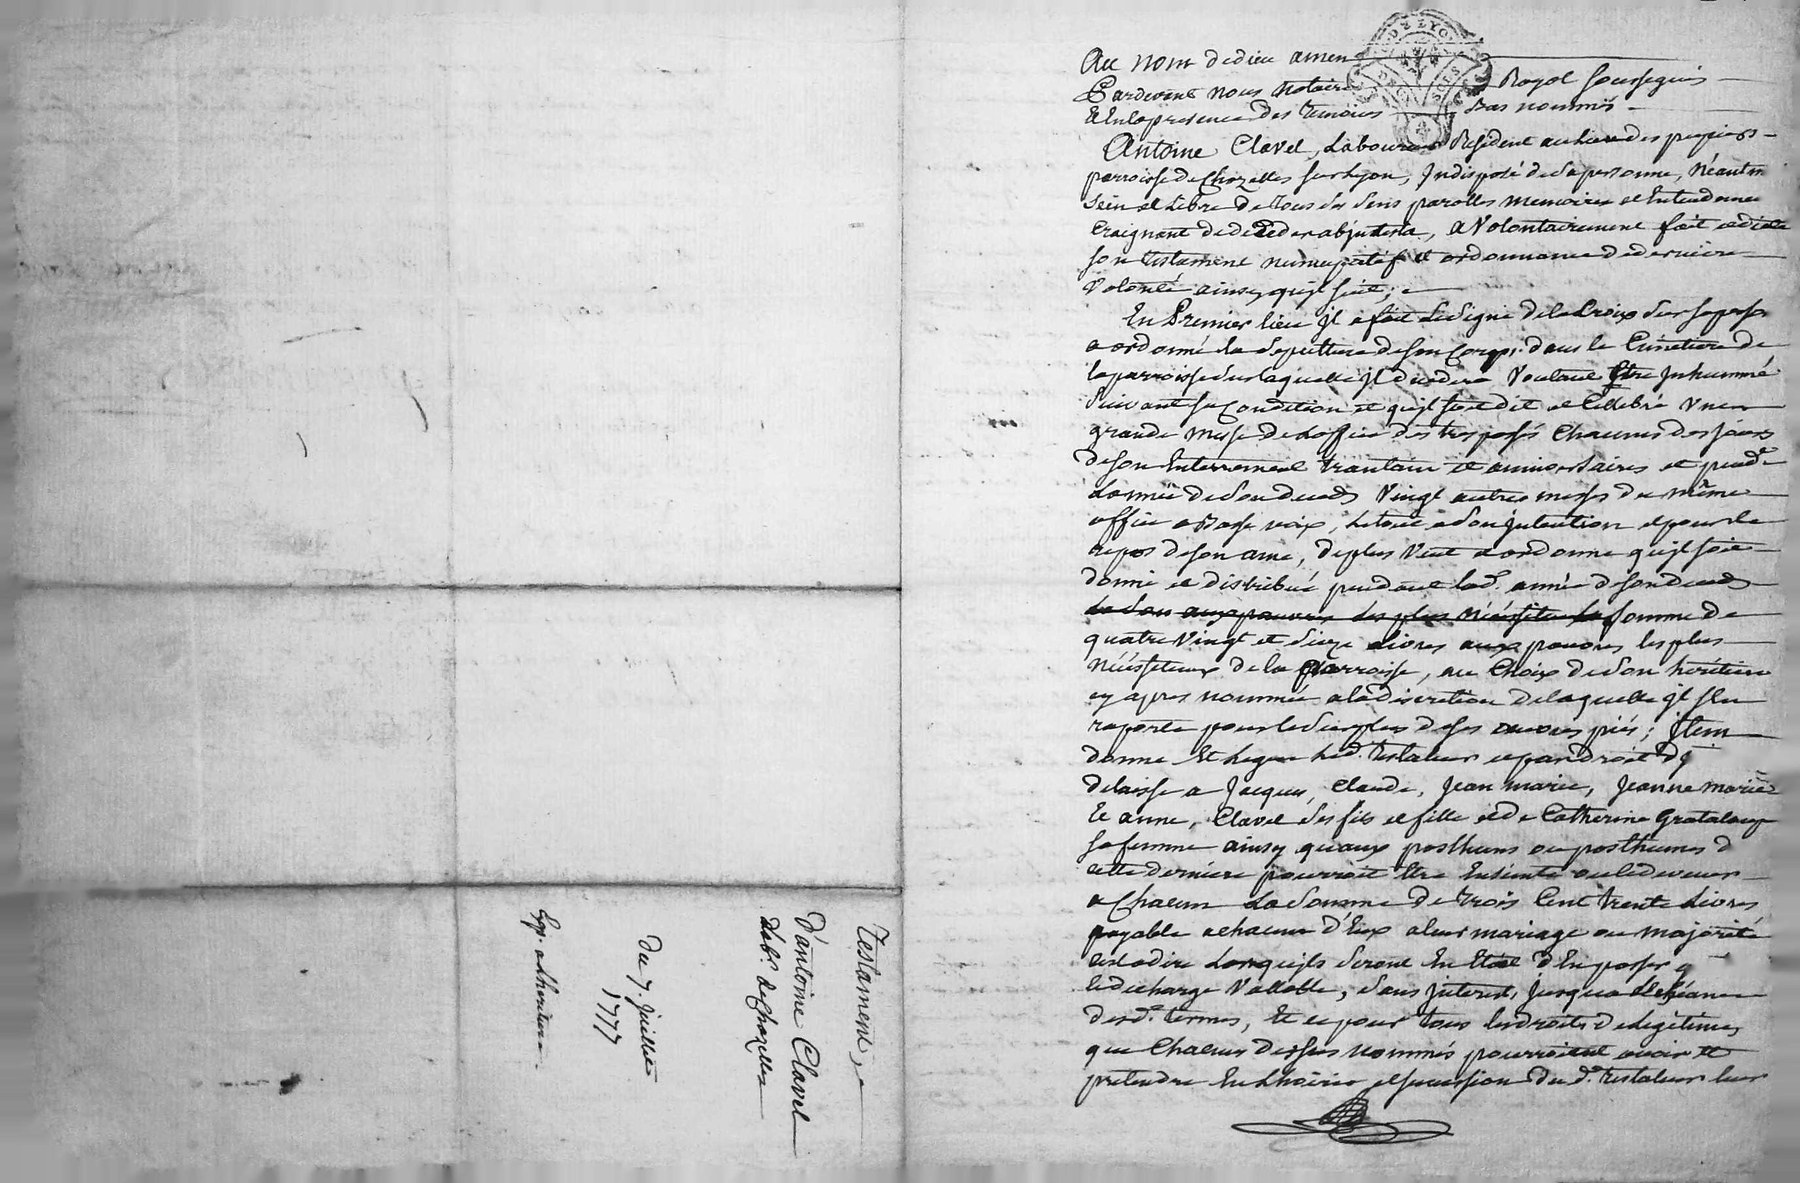 Testament,
d'antoine Clavel
Labr. de Chazelles
Du 7. juillet
1777
Exp. a Lheritiere.
Au nom de dieu amen
Pardevant nous notaire Royal soussignés
et En la presence des temoins bas nommés
Antoine Clavel, Laboureur Résident au lieu des
parroisse de Chazelles sur Lyon, Indisposé de sa personne, Néantm
sein et Libre de tous ses sens parolles memoires et Entendement
Craignant de deceder abjntesta, a Volontairement fait et dicté
son testament nuncupatif et ordonnance de derniere
Volonté ainsy qu'jl suit;
En Premier lieu jl a fait Le signe de la Croix sur sa person
a ordonné la sepulture de son Corps dans le Cimetiere de
la parroisse sur laquelle jl decedera Voulant Etre jnhummé
suivant sa Condition et qu'jl soit dit et Cellebré Une
grande messe de Loffice des trepassés Chacuns des jours
de son Enterrement trantain et anniversaires et pendt
Lannée de son deceds Vingt autres messes du même
office a Basse voix, Le tout a son jntention et pour le
repos de son ame, de plus Veut et ordonne qu'jl soit
donné et distribué pendant lad. année de son deceds
la somme de
quatre Vingt et dix livres aux pauvres les plus
nécéssiteux de la parroisse, au Choix de son heritiere
cy apres nommée a la discretion de laquelle jl s'en
raporte pour le surplus de ses œuvres piés; jtem
donne Et Legue led. testateur et par droit d'j
delaisse a Jacques, Claude, Jean marie, Jeanne marie
Et anne, Clavel ses fils et fille et de Catherine Grataloup
sa femme ainsy qu'aux posthums ou posthumes d
cette derniere pourroit Etre Enseinte au
a Chacun La Somme de trois Cent trente Livres
payable a chacun d'Eux a leur mariage ou majorité
cest a dire Lorsqu'jls seront En Etat d'En passer
decharge Vallable, sans jnterest, jusqu'a
desd. termes, Et ce pour tous les droits de Legitimes,
que Chacuns des sus nommés pourroient avoir et
pretendre En Lhoirie et sucession dud. testateur leur